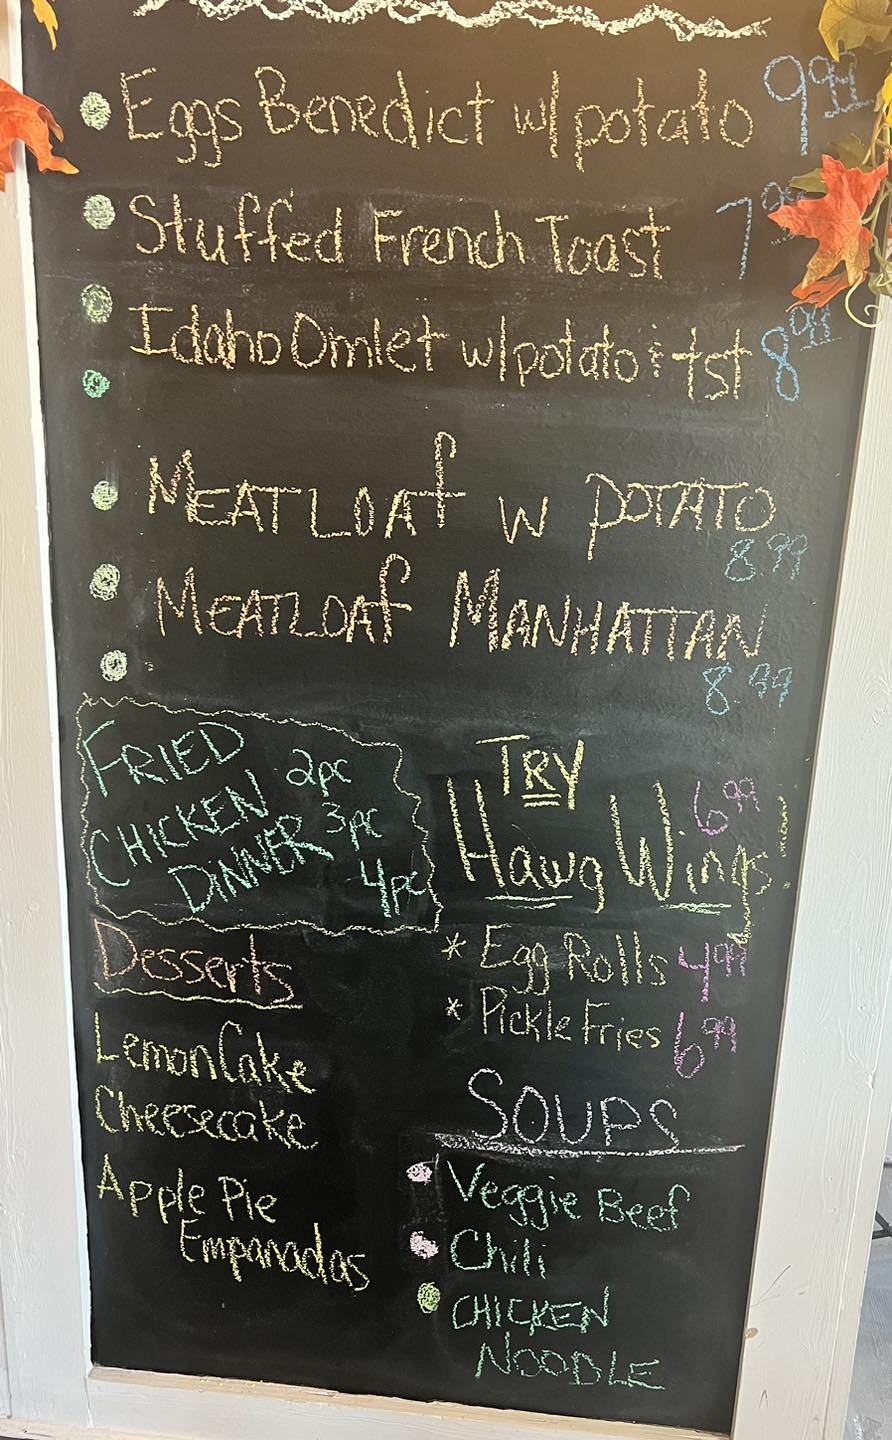 Eggs Benedict w/potato 9.99
Stuffed French Toast 7
Idaho Omlet w/potato & tst 8.99
MEATLOAf w POTATO
8.99
MEATLOAf MANHATTAN
8.99
FRIED 2pc
CHICKEN 3pc
DINNER 4pc
TRY
Hawg Wings! 6.99
* Egg Rolls 4.99
* Pickle Fries 6.99
Desserts
Lemon Cake
Cheesecake
Apple Pie
Empanadas
SOUPS
Veggie Beef
Chili
CHICKEN
NOODLE